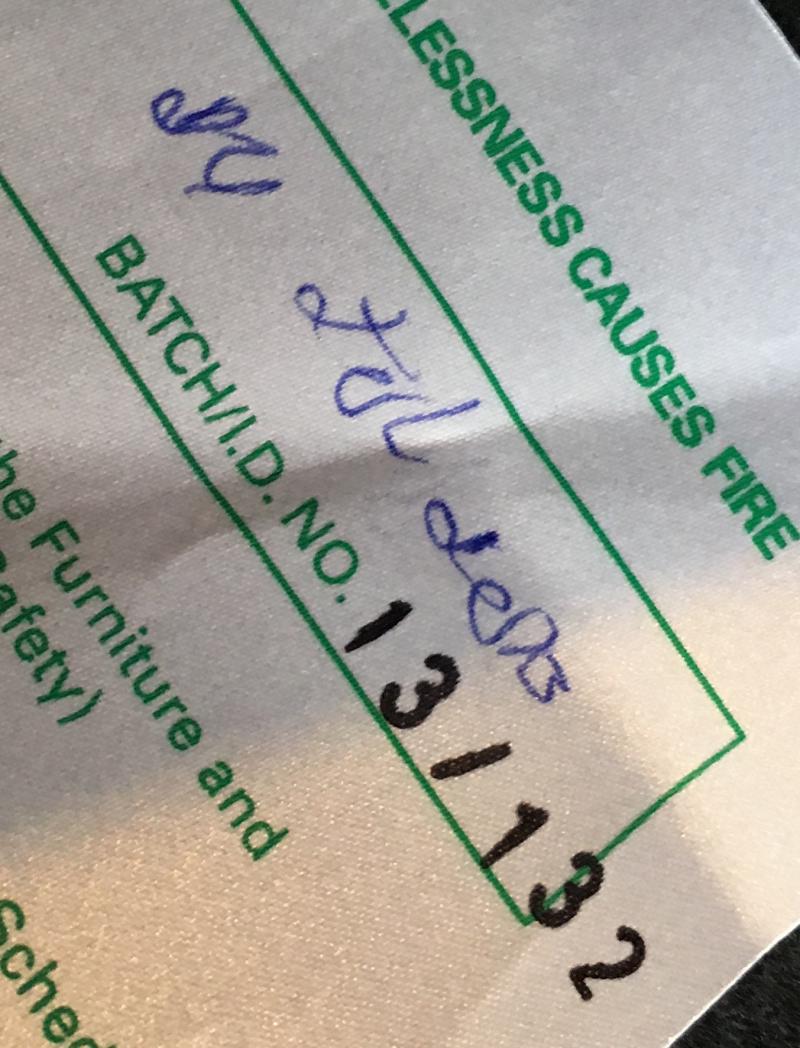 LESSNESS CAUSES FIRE
BATCH/I.D. NO. 13/132
he Furniture and
afety)
Sched